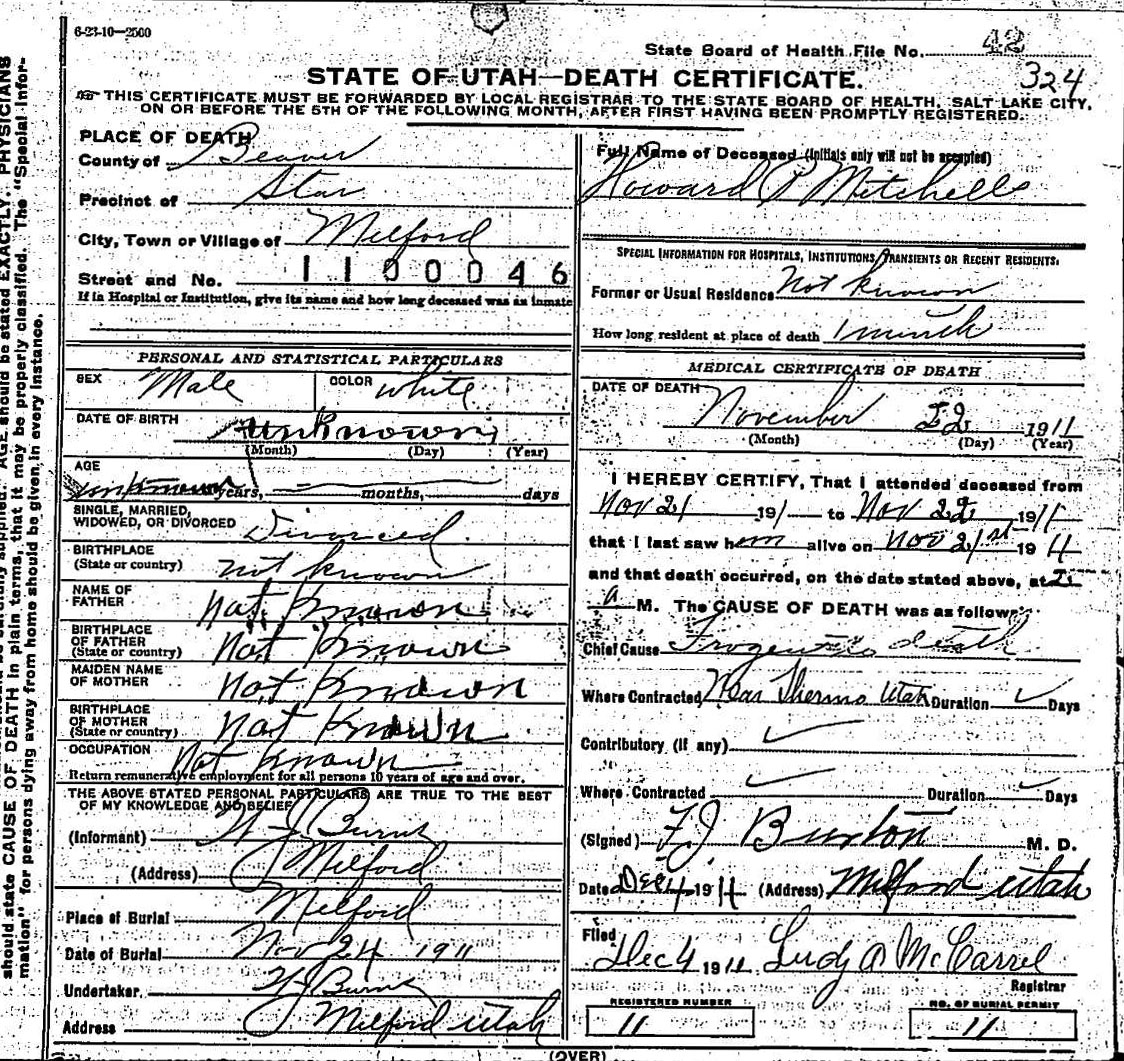 6-23-10—2500
State Board of Health File No. 42
324
STATE OF UTAH—DEATH CERTIFICATE.
THIS CERTIFICATE MUST BE FORWARDED BY LOCAL REGISTRAR TO THE STATE BOARD OF HEALTH, SALT LAKE CITY,
ON OR BEFORE THE 5TH OF THE FOLLOWING MONTH, AFTER FIRST HAVING BEEN PROMPTLY REGISTERED.
PLACE OF DEATH
County of Beaver
Precinct of Star
City, Town or Village of Milford
Street and No. 1100046
If in Hospital or Institution, give its name and how long deceased was an inmate
PERSONAL AND STATISTICAL PARTICULARS
SEX Male COLOR White
DATE OF BIRTH unknown
(Month) (Day) (Year)
AGE
unknown years, months, days
SINGLE, MARRIED,
WIDOWED, OR DIVORCED Divorced.
BIRTHPLACE
(State or country) not known
NAME OF
FATHER Not Known
BIRTHPLACE
OF FATHER
(State or country) Not Known
MAIDEN NAME
OF MOTHER Not Known
BIRTHPLACE
OF MOTHER
(State or country) Not Known
OCCUPATION Not Known
Return remunerative employment for all persons 10 years of age and over.
THE ABOVE STATED PERSONAL PARTICULARS ARE TRUE TO THE BEST
OF MY KNOWLEDGE AND BELIEF
(Informant)
(Address) Milford
Place of Burial Milford
Date of Burial Nov 24 1911
Undertaker
Address Milford Utah
Full Name of Deceased (Initials only will not be accepted)
Howard P Mitchell
SPECIAL INFORMATION FOR HOSPITALS, INSTITUTIONS, TRANSIENTS OR RECENT RESIDENTS.
Former or Usual Residence Not known
How long resident at place of death 1 month
MEDICAL CERTIFICATE OF DEATH
DATE OF DEATH
November 22 1911
(Month) (Day) (Year)
I HEREBY CERTIFY, That I attended deceased from
Nov 21 191 to Nov 22 1911
that I last saw him alive on Nov 21st 1911
and that death occurred, on the date stated above, at 2
a M. The CAUSE OF DEATH was as follows:
Chief Cause Frozen to death
Where Contracted Near Thermo Utah Duration Days
Contributory (if any)
Where Contracted Duration Days
(Signed) F J Burton M. D.
Date Dec 4 1911 (Address) Milford Utah
Filed
Dec 4 1911 McCarrel
Registrar
REGISTERED NUMBER
11
NO. OF BURIAL PERMIT
11
(OVER)
AGE should be stated EXACTLY. PHYSICIANS
should state CAUSE OF DEATH in plain terms, that it may be properly classified. The "Special Infor-
mation" for persons dying away from home should be given in every instance.